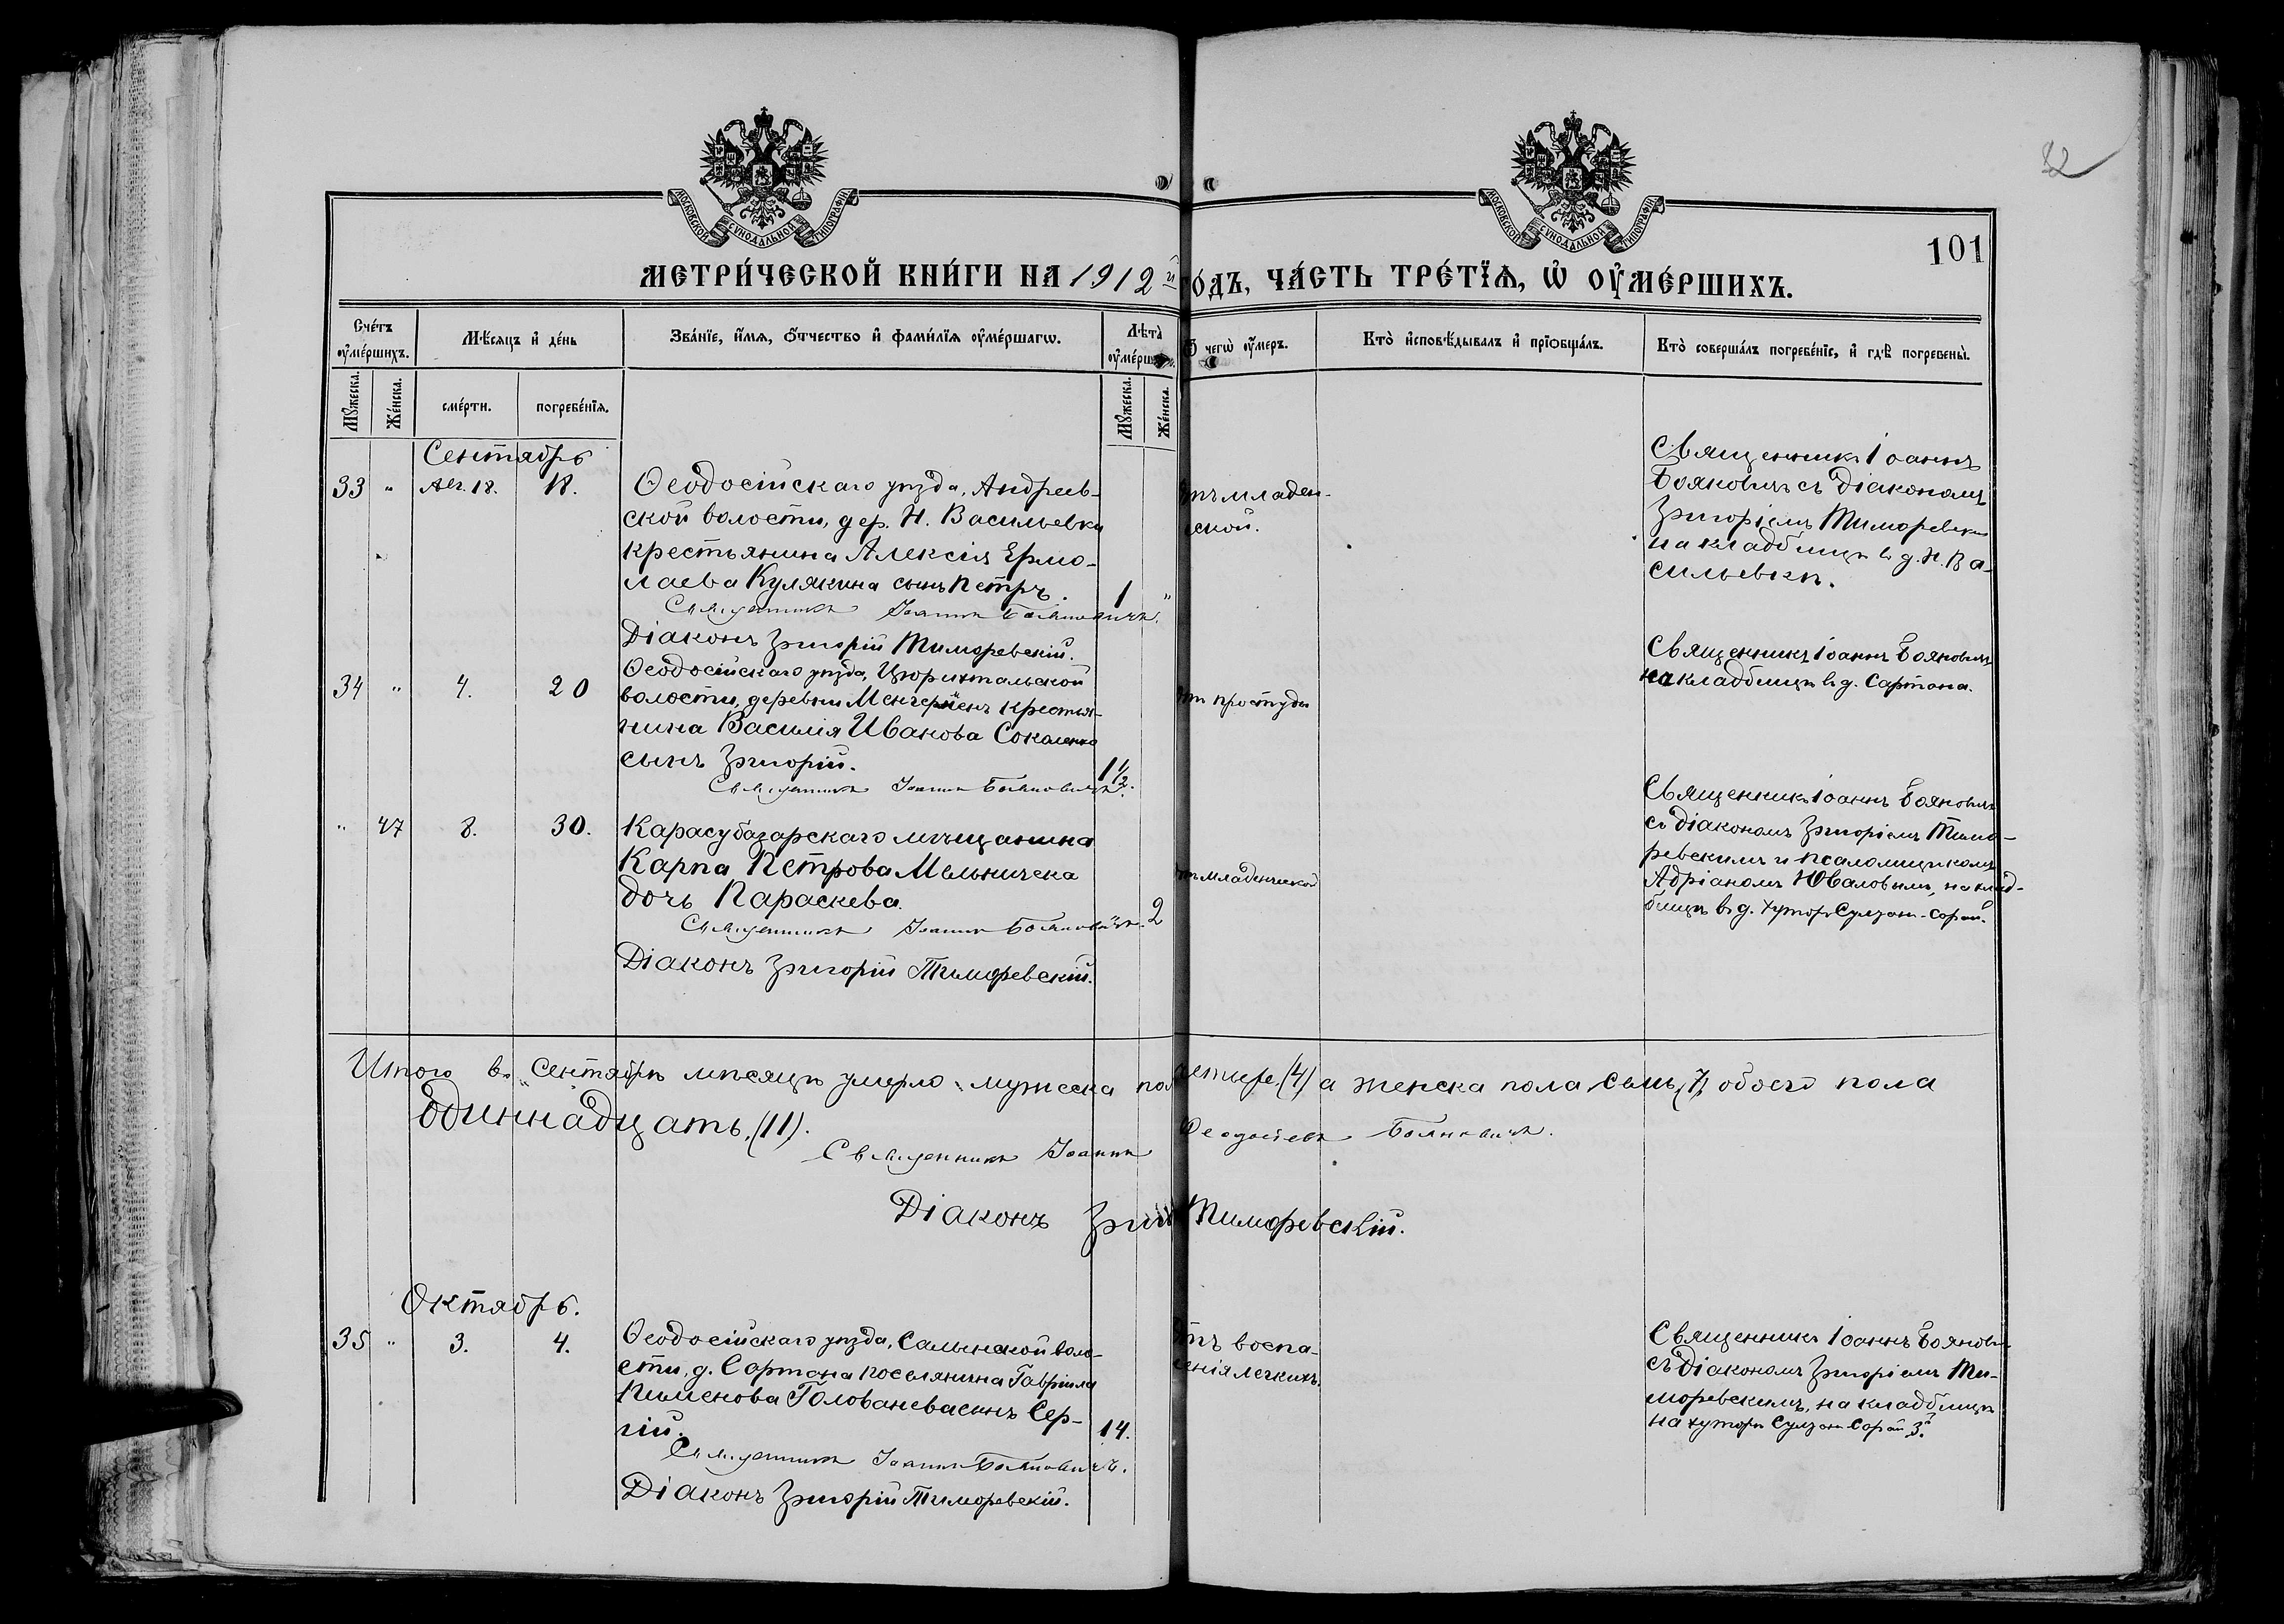 82
МОСКОВСКОЙ СУНОДАЛЬНОЙ ТИПОГРАФІИ
МОСКОВСКОЙ СУНОДАЛЬНОЙ ТИПОГРАФІИ
101
МЕТРИ́ЧЕСКОЙ КНИ́ГИ НА 1912 й го́дъ, ЧА́СТЬ ТРЕ́ТЇѦ, Ѡ҆ ОУ҆МЕ́РШИХЪ.
Сче́тъ оу҆ме́ршихъ.
Мѣ́сяцъ и҆ де́нь
Зва́нїе, и҆́мѧ, ѻ҆́тчество и҆ фами́лїѧ оу҆ме́ршагѡ.
Лѣ́та оу҆ме́рш
Ѿ чегѡ̀ оу҆́меръ.
Кто̀ и҆сповѣ́дывалъ и҆ прїѻбща́лъ.
Кто̀ соверша́лъ погребе́нїе, и҆ гдѣ̀ погребены̀.
Мꙋ́жеска.
Же́нска.
сме́рти.
погребе́нїѧ.
Мꙋ́жеска.
Же́нска.
Сентябрь
33 " Авг. 18. 18.
Ѳеодосійскаго уѣзда, Андреев-
ской волости, дер. Н. Васильевки
крестьянина Алексія Ермо-
лаева Кулякина сынъ Петръ. 1 "
Священникъ Іоаннъ Бояновичъ.
Діаконъ Григорій Тиморевскій.
отъ младен-
ческой.
Священникъ Іоаннъ
Бояновичъ съ діакономъ
Григоріемъ Тиморевским
на кладбищѣ въ д. Н. Ва-
сильевкѣ.
34 " 4. 20
Ѳеодосійскаго уѣзда, Цюрихтальской
волости, деревни Менгерменъ крестья-
нина Василія Иванова Соколенко
сынъ Григорій. 1½
Священникъ Іоаннъ Бояновичъ.
отъ простуды
Священникъ Іоаннъ Бояновичъ
на кладбищѣ въ д. Сартана.
" 47 8. 30.
Карасубазарскаго мѣщанина
Карпа Петрова Мельничека
дочь Параскева. 2
Священникъ Іоаннъ Бояновичъ.
Діаконъ Григорій Тиморевскій.
отъ младенческой
Священникъ Іоаннъ Бояновичъ
съ діакономъ Григоріемъ Тимо-
ревскимъ и псаломщикомъ
Адріаномъ Юваловымъ, на клад-
бищѣ въ д. хуторъ Сулзанъ-Сарай.
Итого въ Сентябрѣ мѣсяцѣ умерло мужеска пола четыре (4) а женска пола семь (7) обоего пола
одиннадцать, (11).
Священникъ Іоаннъ Ѳеодосіевъ Бояновичъ.
Діаконъ Григ Тиморевскій.
Октябрь.
35 " 3. 4.
Ѳеодосійскаго уѣзда, Салынской воло-
сти, д. Сартана поселянина Гавріила
Пименова Голованева сынъ Сер-
гій. 14.
Священникъ Іоаннъ Бояновичъ.
Діаконъ Григорій Тиморевскій.
Отъ воспа-
ленія легкихъ.
Священникъ Іоаннъ Боянович
съ діакономъ Григоріемъ Ти-
моревскимъ, на кладбищѣ
на хуторѣ Сулзанъ-Сарай 3й